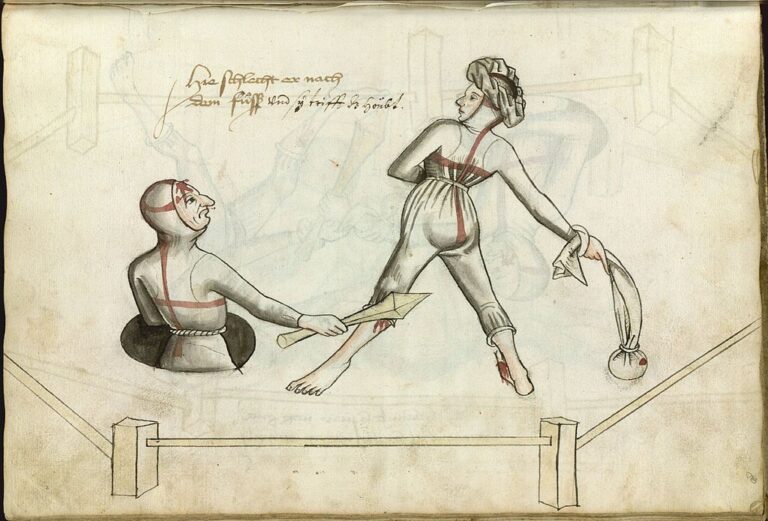 Hie schlecht er nach
dem fuͦsß und sÿ trifft dz höubt.